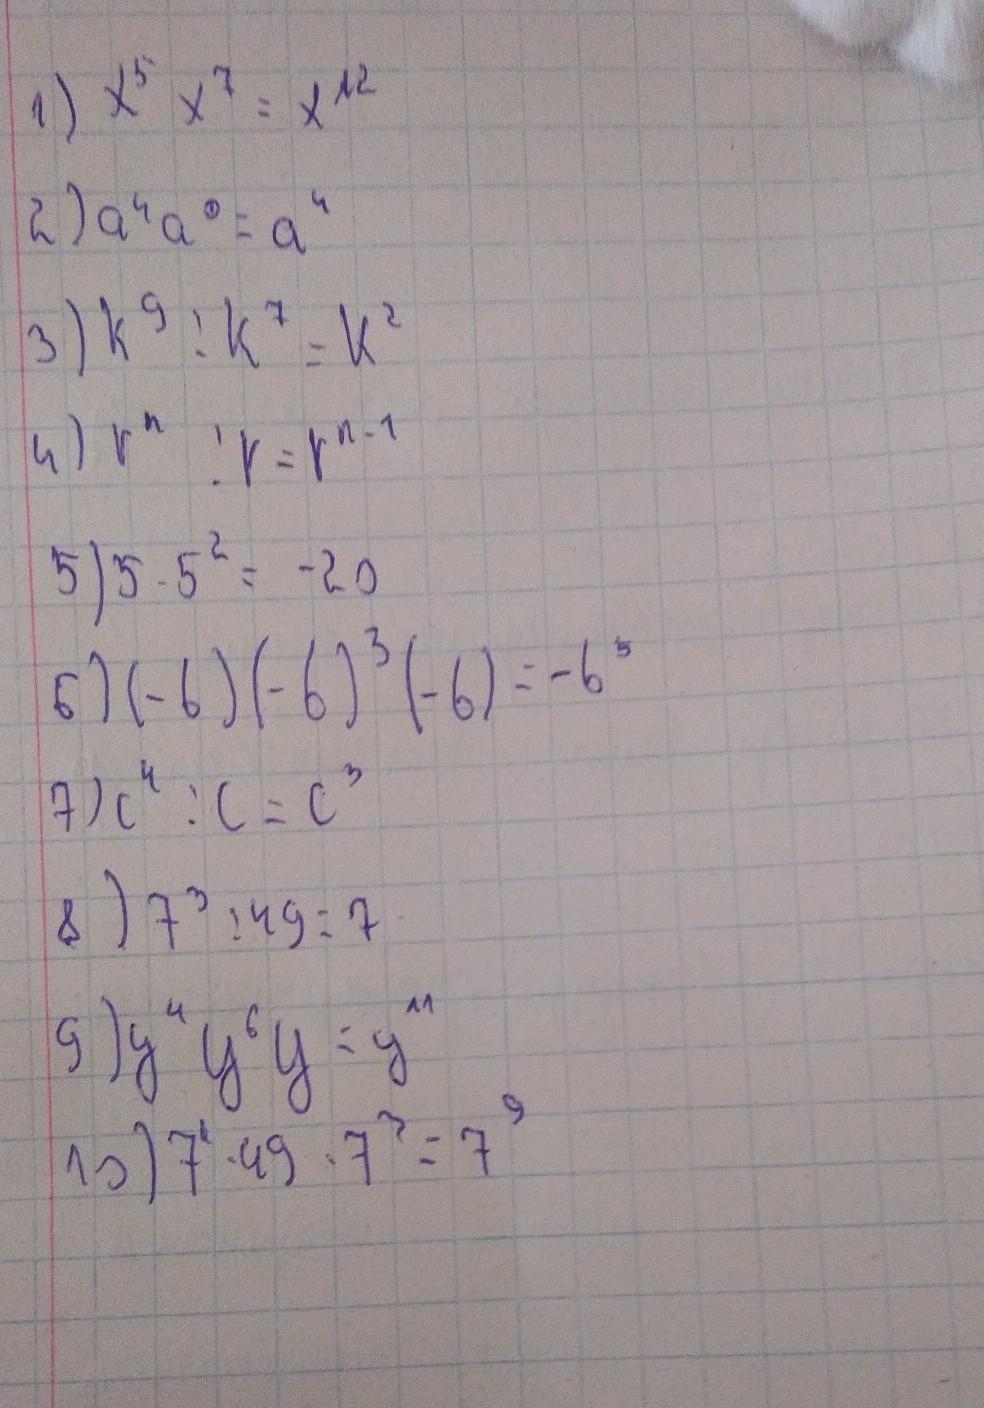 1) x⁵ x⁷ = x¹²
2) a⁴ a⁰ = a⁴
3) k⁹ : k⁷ = k²
4) rⁿ : r = rⁿ⁻¹
5) 5 · 5² = -20
6) (-6)(-6)³(-6) = -6⁵
7) c⁴ : c = c³
8) 7³ : 49 = 7
9) y⁴ y⁶ y = y¹¹
10) 7 · 49 · 7³ = 7⁹